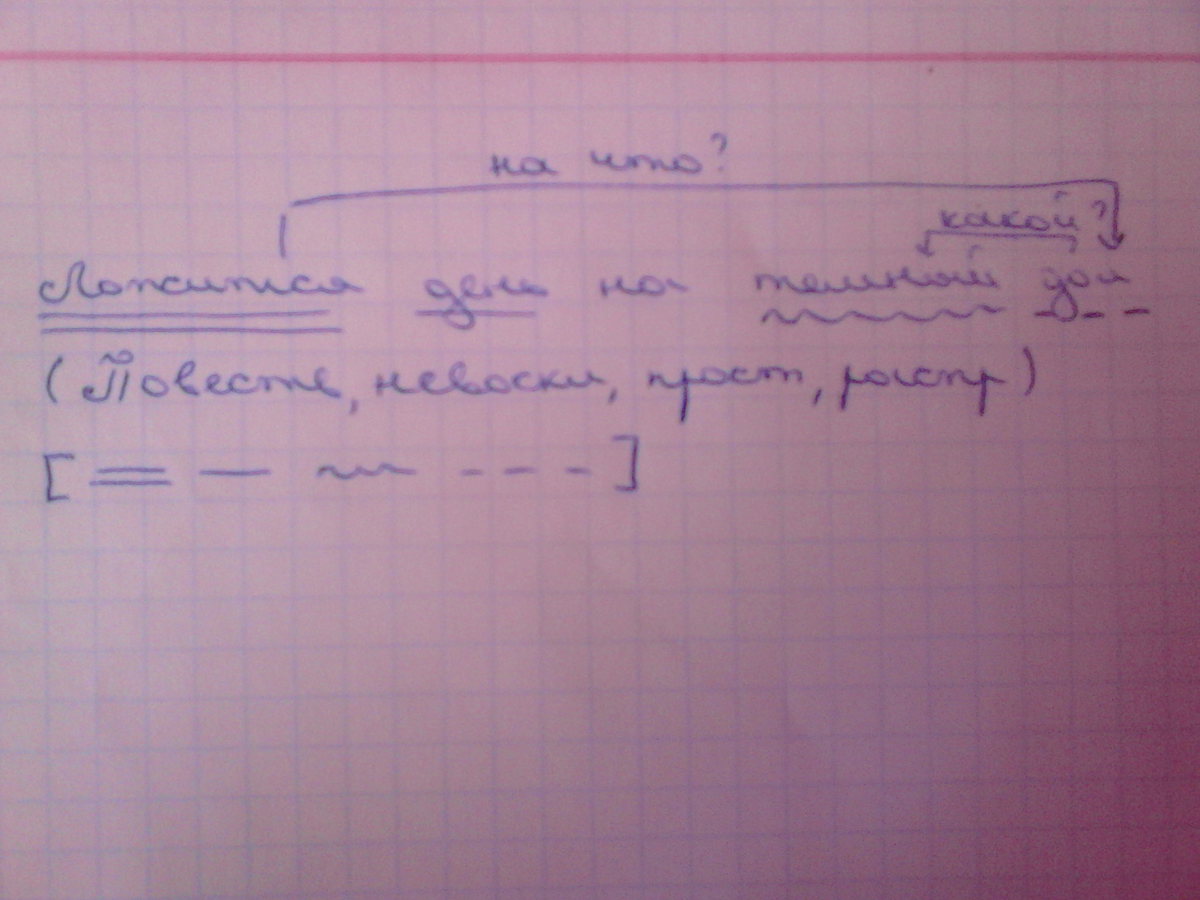 на что?
какой?
Ложится день на темный дол
(Повеств, невоскл, прост, распр)